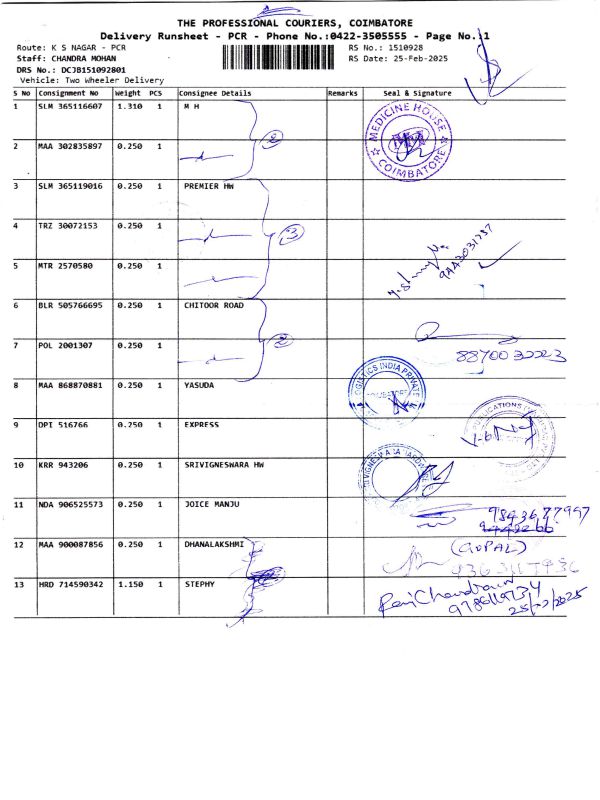 THE PROFESSIONAL COURIERS, COIMBATORE
Delivery Runsheet - PCR - Phone No.:0422-3505555 - Page No.:1
Route: K S NAGAR - PCR RS No.: 1510928
Staff: CHANDRA MOHAN RS Date: 25-Feb-2025
DRS No.: DCJB151092801
Vehicle: Two Wheeler Delivery
S No Consignment No Weight PCS Consignee Details Remarks Seal & Signature
1 SLM 365116607 1.310 1 M H
MEDICINE HOUSE
COIMBATORE
2 MAA 302835897 0.250 1 2
3 SLM 365119016 0.250 1 PREMIER HW
4 TRZ 30072153 0.250 1 3
5 MTR 2570580 0.250 1
6 BLR 505766695 0.250 1 CHITOOR ROAD
7 POL 2001307 0.250 1 2
8 MAA 868870881 0.250 1 YASUDA
LOGISTICS INDIA PRIVATE
9 DPI 516766 0.250 1 EXPRESS
PUBLICATIONS
10 KRR 943206 0.250 1 SRIVIGNESWARA HW
11 NDA 906525573 0.250 1 JOICE MANJU
12 MAA 900087856 0.250 1 DHANALAKSHMI (GOPAL)
13 HRD 714590342 1.150 1 STEPHY RaviChandran